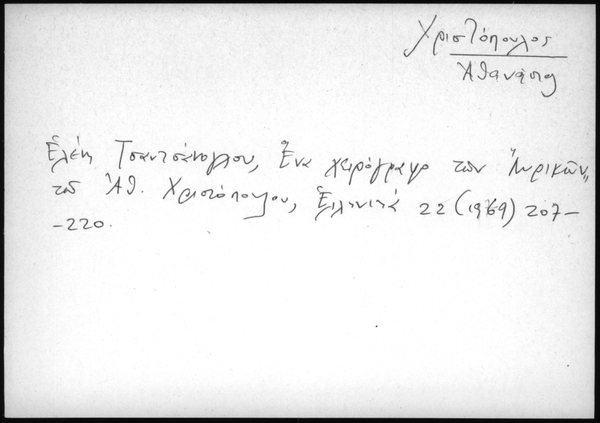 Χριστόπουλος
Ἀθανάσιος
Ἑλένη Τσαντσάνογλου, Ἕνα χειρόγραφο τῶν "Λυρικῶν"
τοῦ Ἀθ. Χριστόπουλου, Ἑλληνικά 22 (1969) 207-
-220.